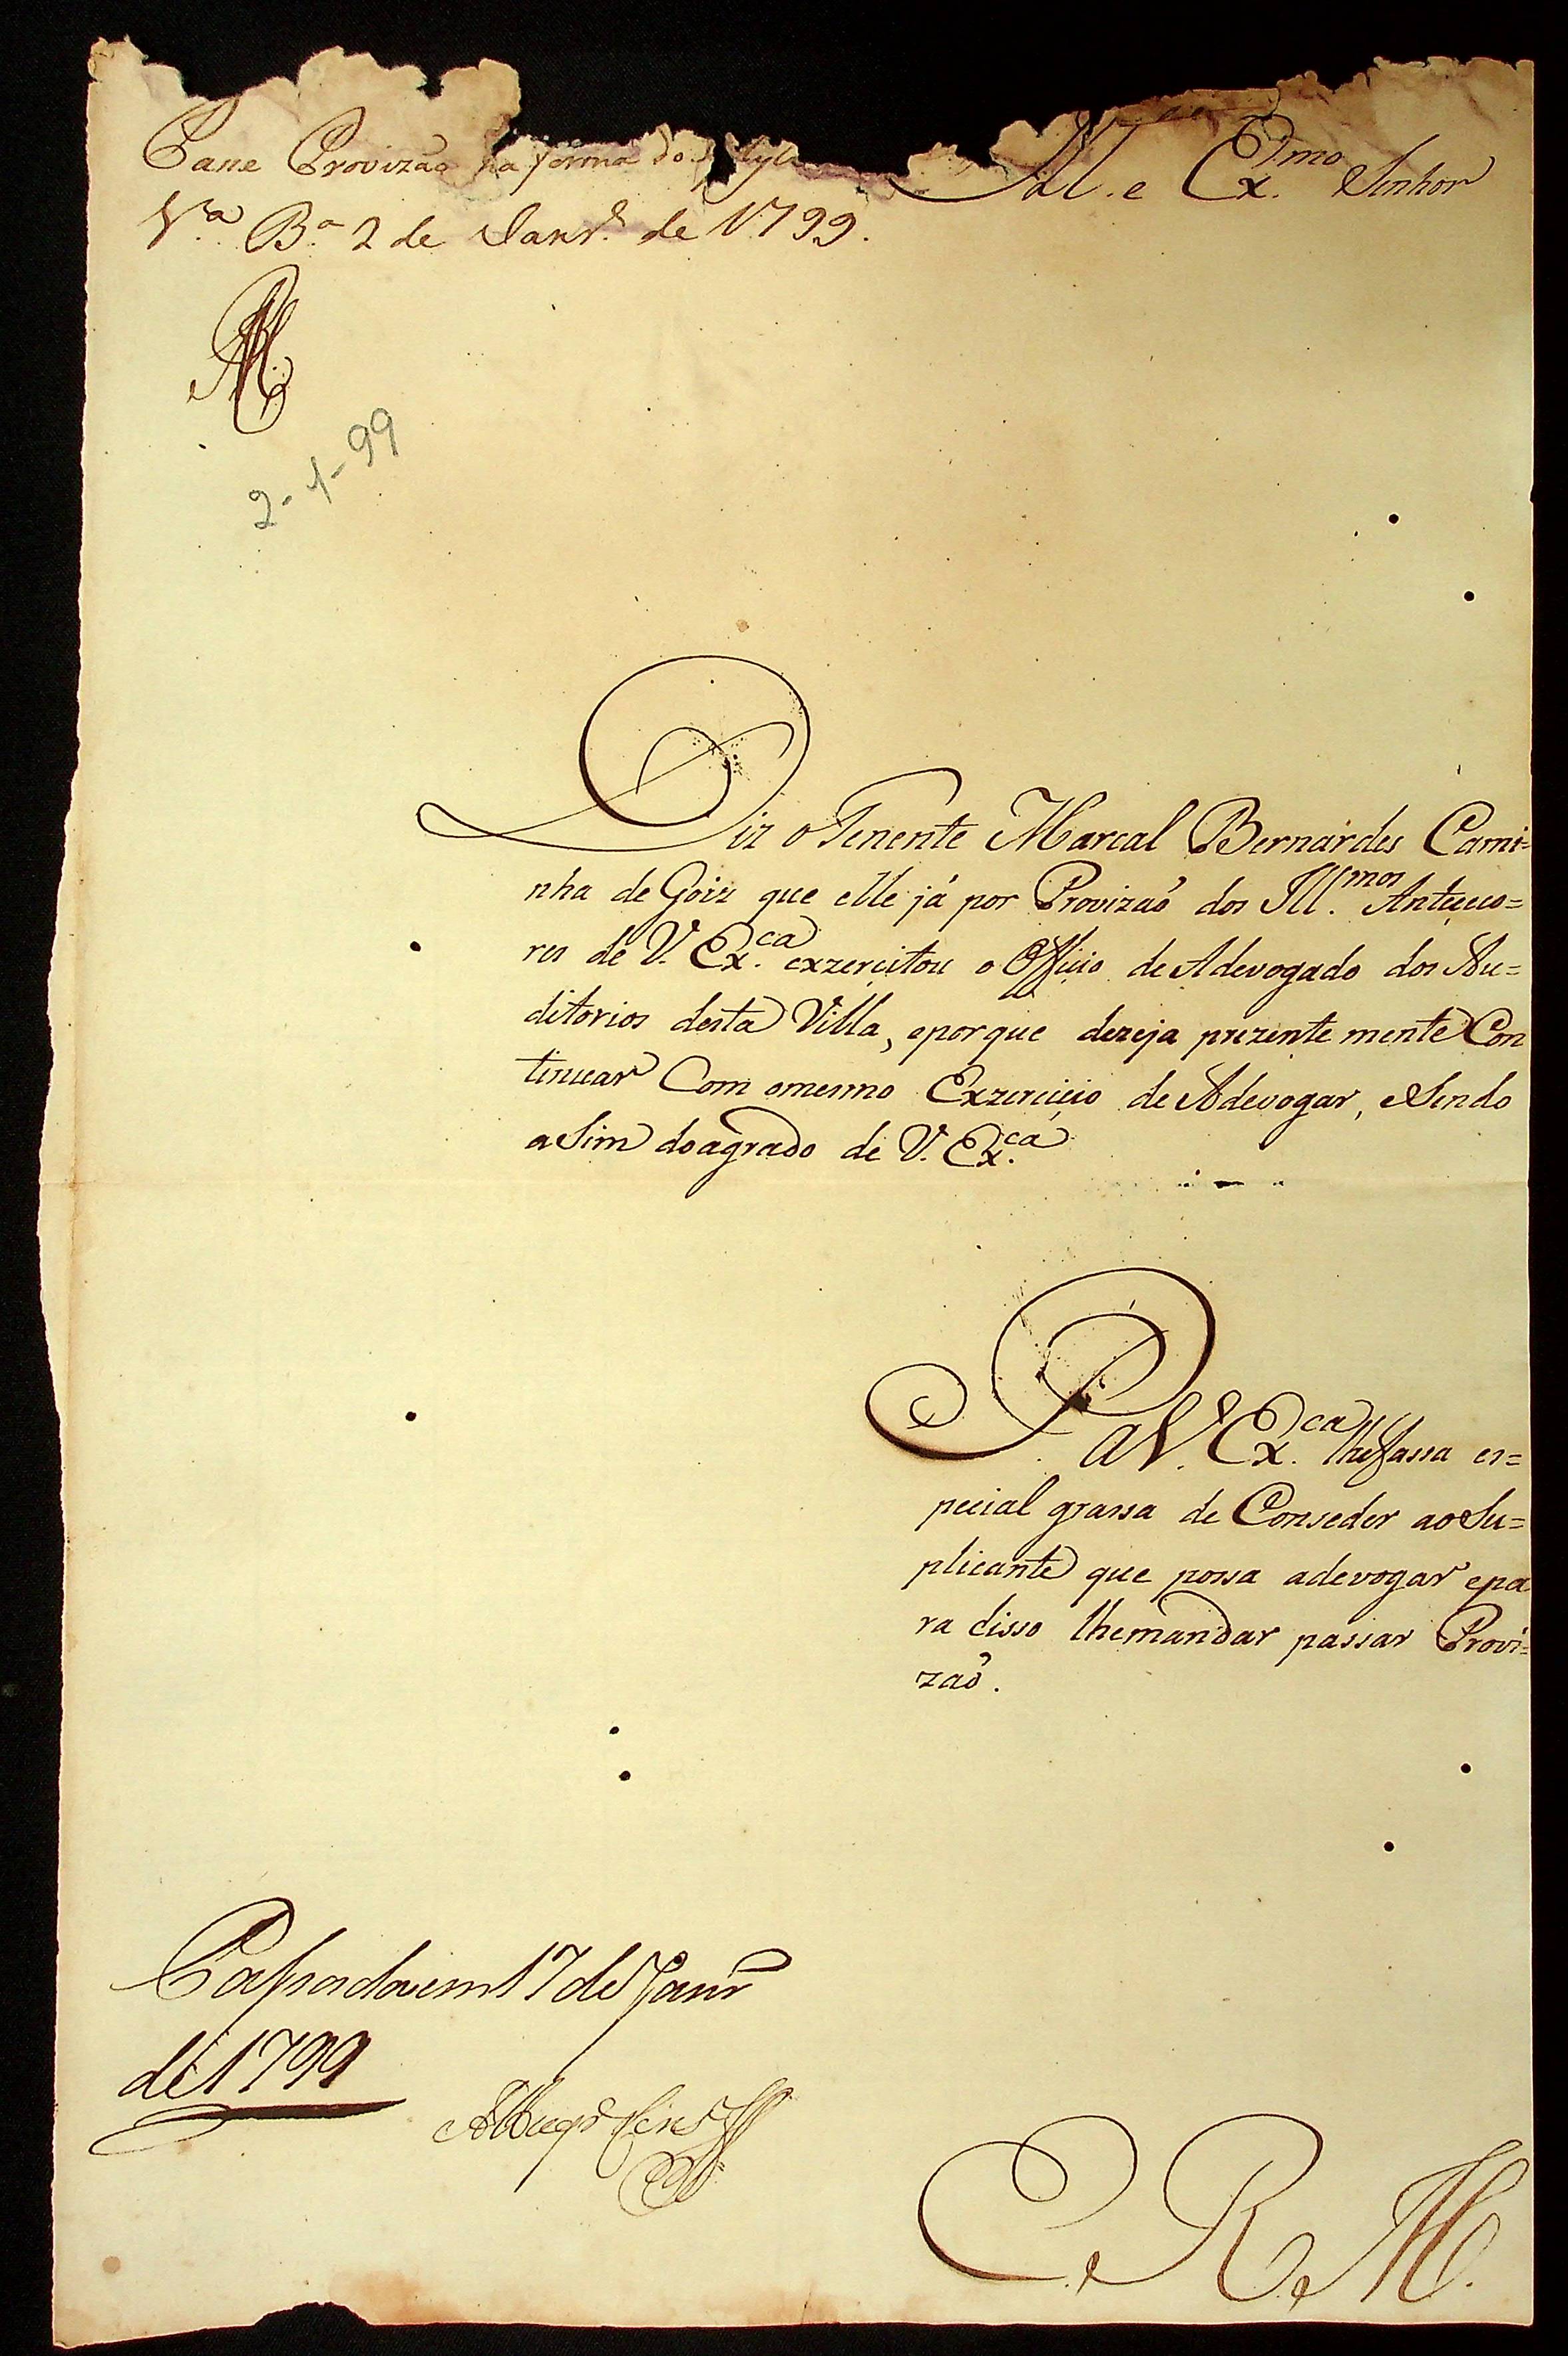 Passe Provizaõ na forma do
V.ª B.ª 2 de Janr.º de 1799.
Ill. e Ex.mo Senhor
2-1-99
Diz o Tenente Marcal Bernardes Cami=
nha de Goiz que elle já por Provizaõ dos Ill.mos Anteceço=
res de V. Ex.ca exzerçitou o Offiçio de Adevogado dos Au=
ditorios desta Villa, eporque dezeja prezente mente Con
tinuar Com omesmo Exzerciçio de Adevogar, eSendo
aSim doagrado de V. Ex.ca
P. a V. Ex.ca lhefassa es=
pecial grassa de Conseder aoSu=
plicante que possa adevogar epa
ra disso lhemandar passar Provi=
zaõ.
Passada em 17 de Janr
de 1799
E. R. M.